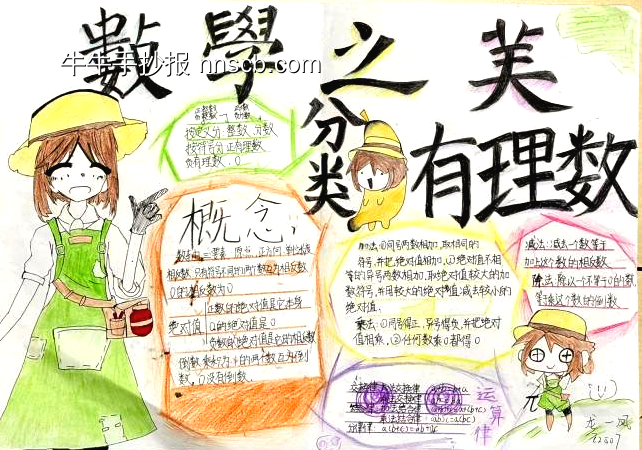 數學之美
牛牛手抄报 nnscb.com
分类
有理数
按定义分:整数、分数
按符号分:正有理数
负有理数、0
概念:
数轴:三要素 原点、正方向、单位长度
相反数:只有符号不同的两个数互为相反数
0的相反数为0
绝对值
正数的绝对值是它本身
0的绝对值是0
负数的绝对值是它的相反数
倒数:乘积为1的两个数互为倒
数,0没有倒数.
加法:①同号两数相加,取相同的
符号,并把绝对值相加,②绝对值不相
等的异号两数相加,取绝对值较大的加
数符号,并用较大的绝对值减去较小的
绝对值.
乘法:①同号得正,异号得负,并把绝对
值相乘.②任何数乘0都得0
减法:减去一个数等于
加上这个数的相反数.
除法:除以一个不等于0的数,
等于乘这个数的倒数.
运算律
交换律
加法交换律 a+b=b+a
乘法交换律
结合律
乘法结合律:(ab)c=a(bc)
分配律:a(b+c)=ab+ac
π
龙一凤